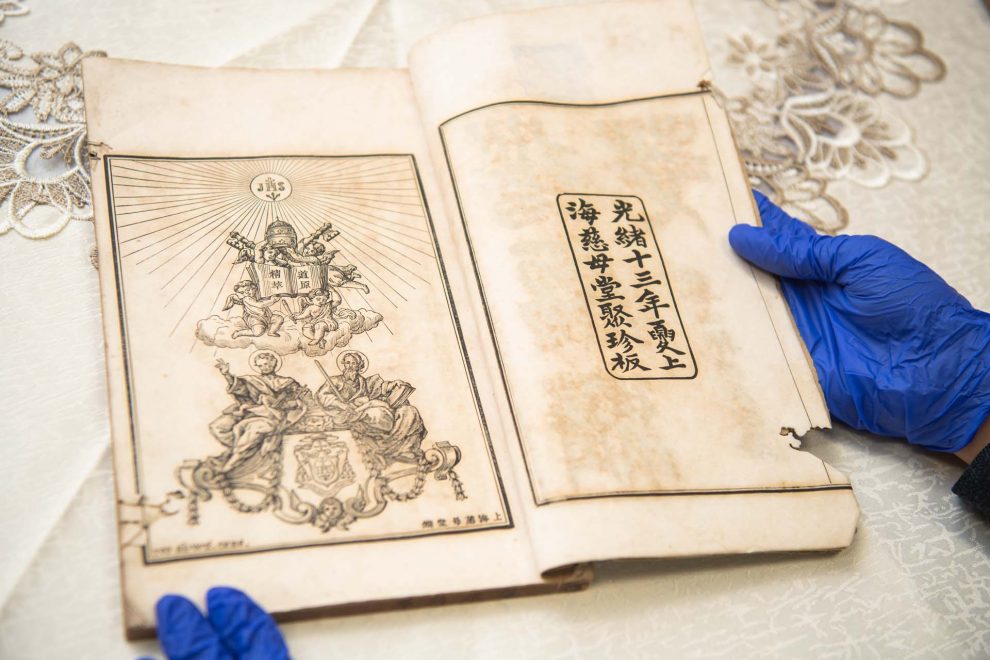 光緒十三年夏上
海慈母堂聚珍板
JHS
道原
精萃
上海慈母堂